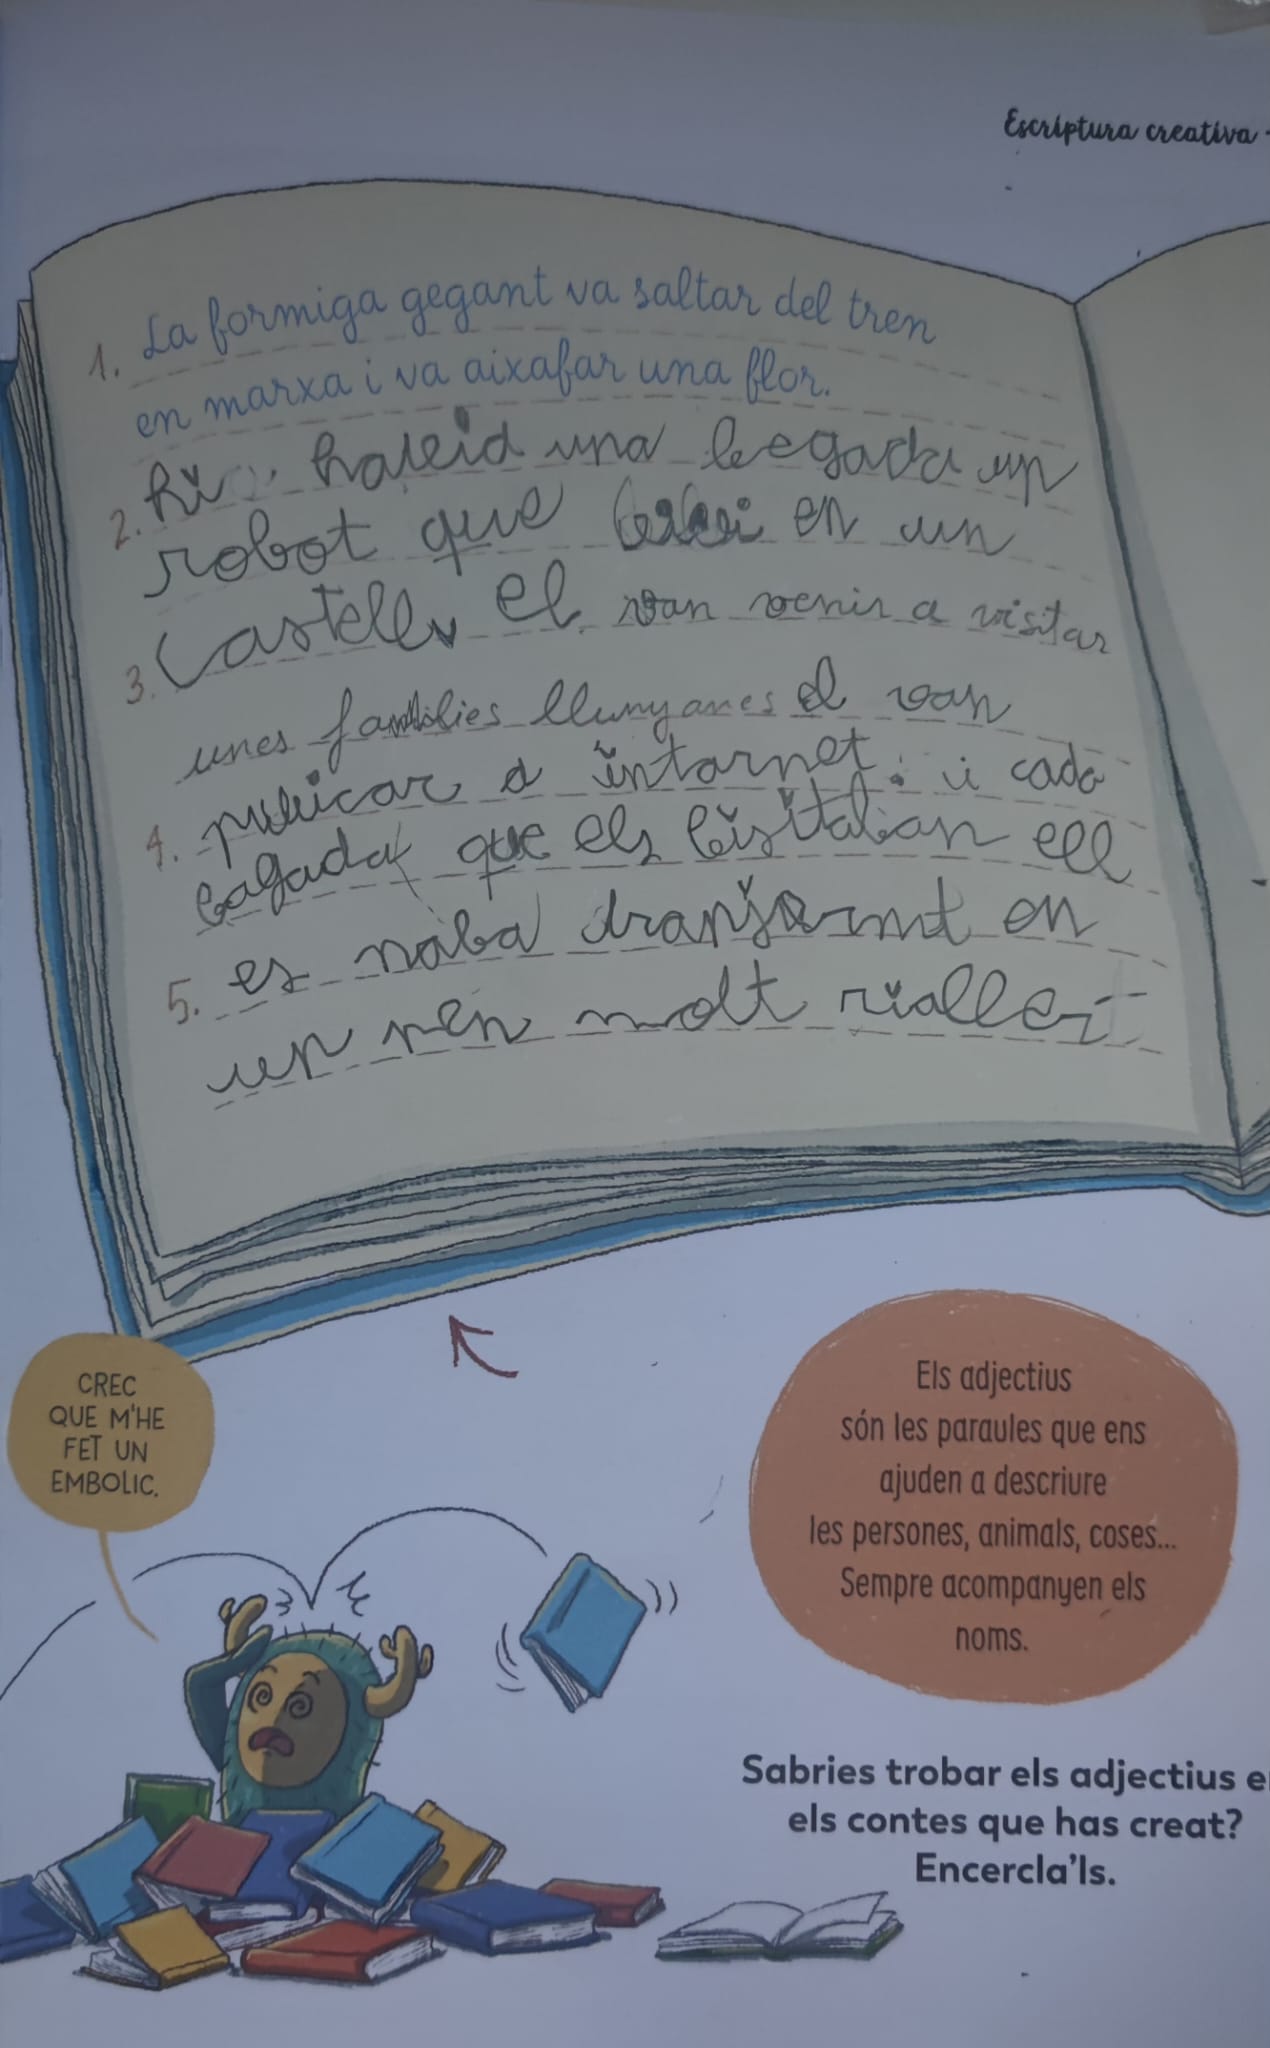 Escriptura creativa
1. La formiga gegant va saltar del tren
en marxa i va aixafar una flor.
2. hi haveid una begada un
robot que en un
3. Castell. el van venir a visitar
unes families llunyanes el van
4. puvicar a intarnet. i cada
bagada que els bisitaban ell
5. es naba dranformt en
un nen molt rialler
CREC
QUE M'HE
FET UN
EMBOLIC.
Els adjectius
són les paraules que ens
ajuden a descriure
les persones, animals, coses...
Sempre acompanyen els
noms.
Sabries trobar els adjectius e
els contes que has creat?
Encercla'ls.